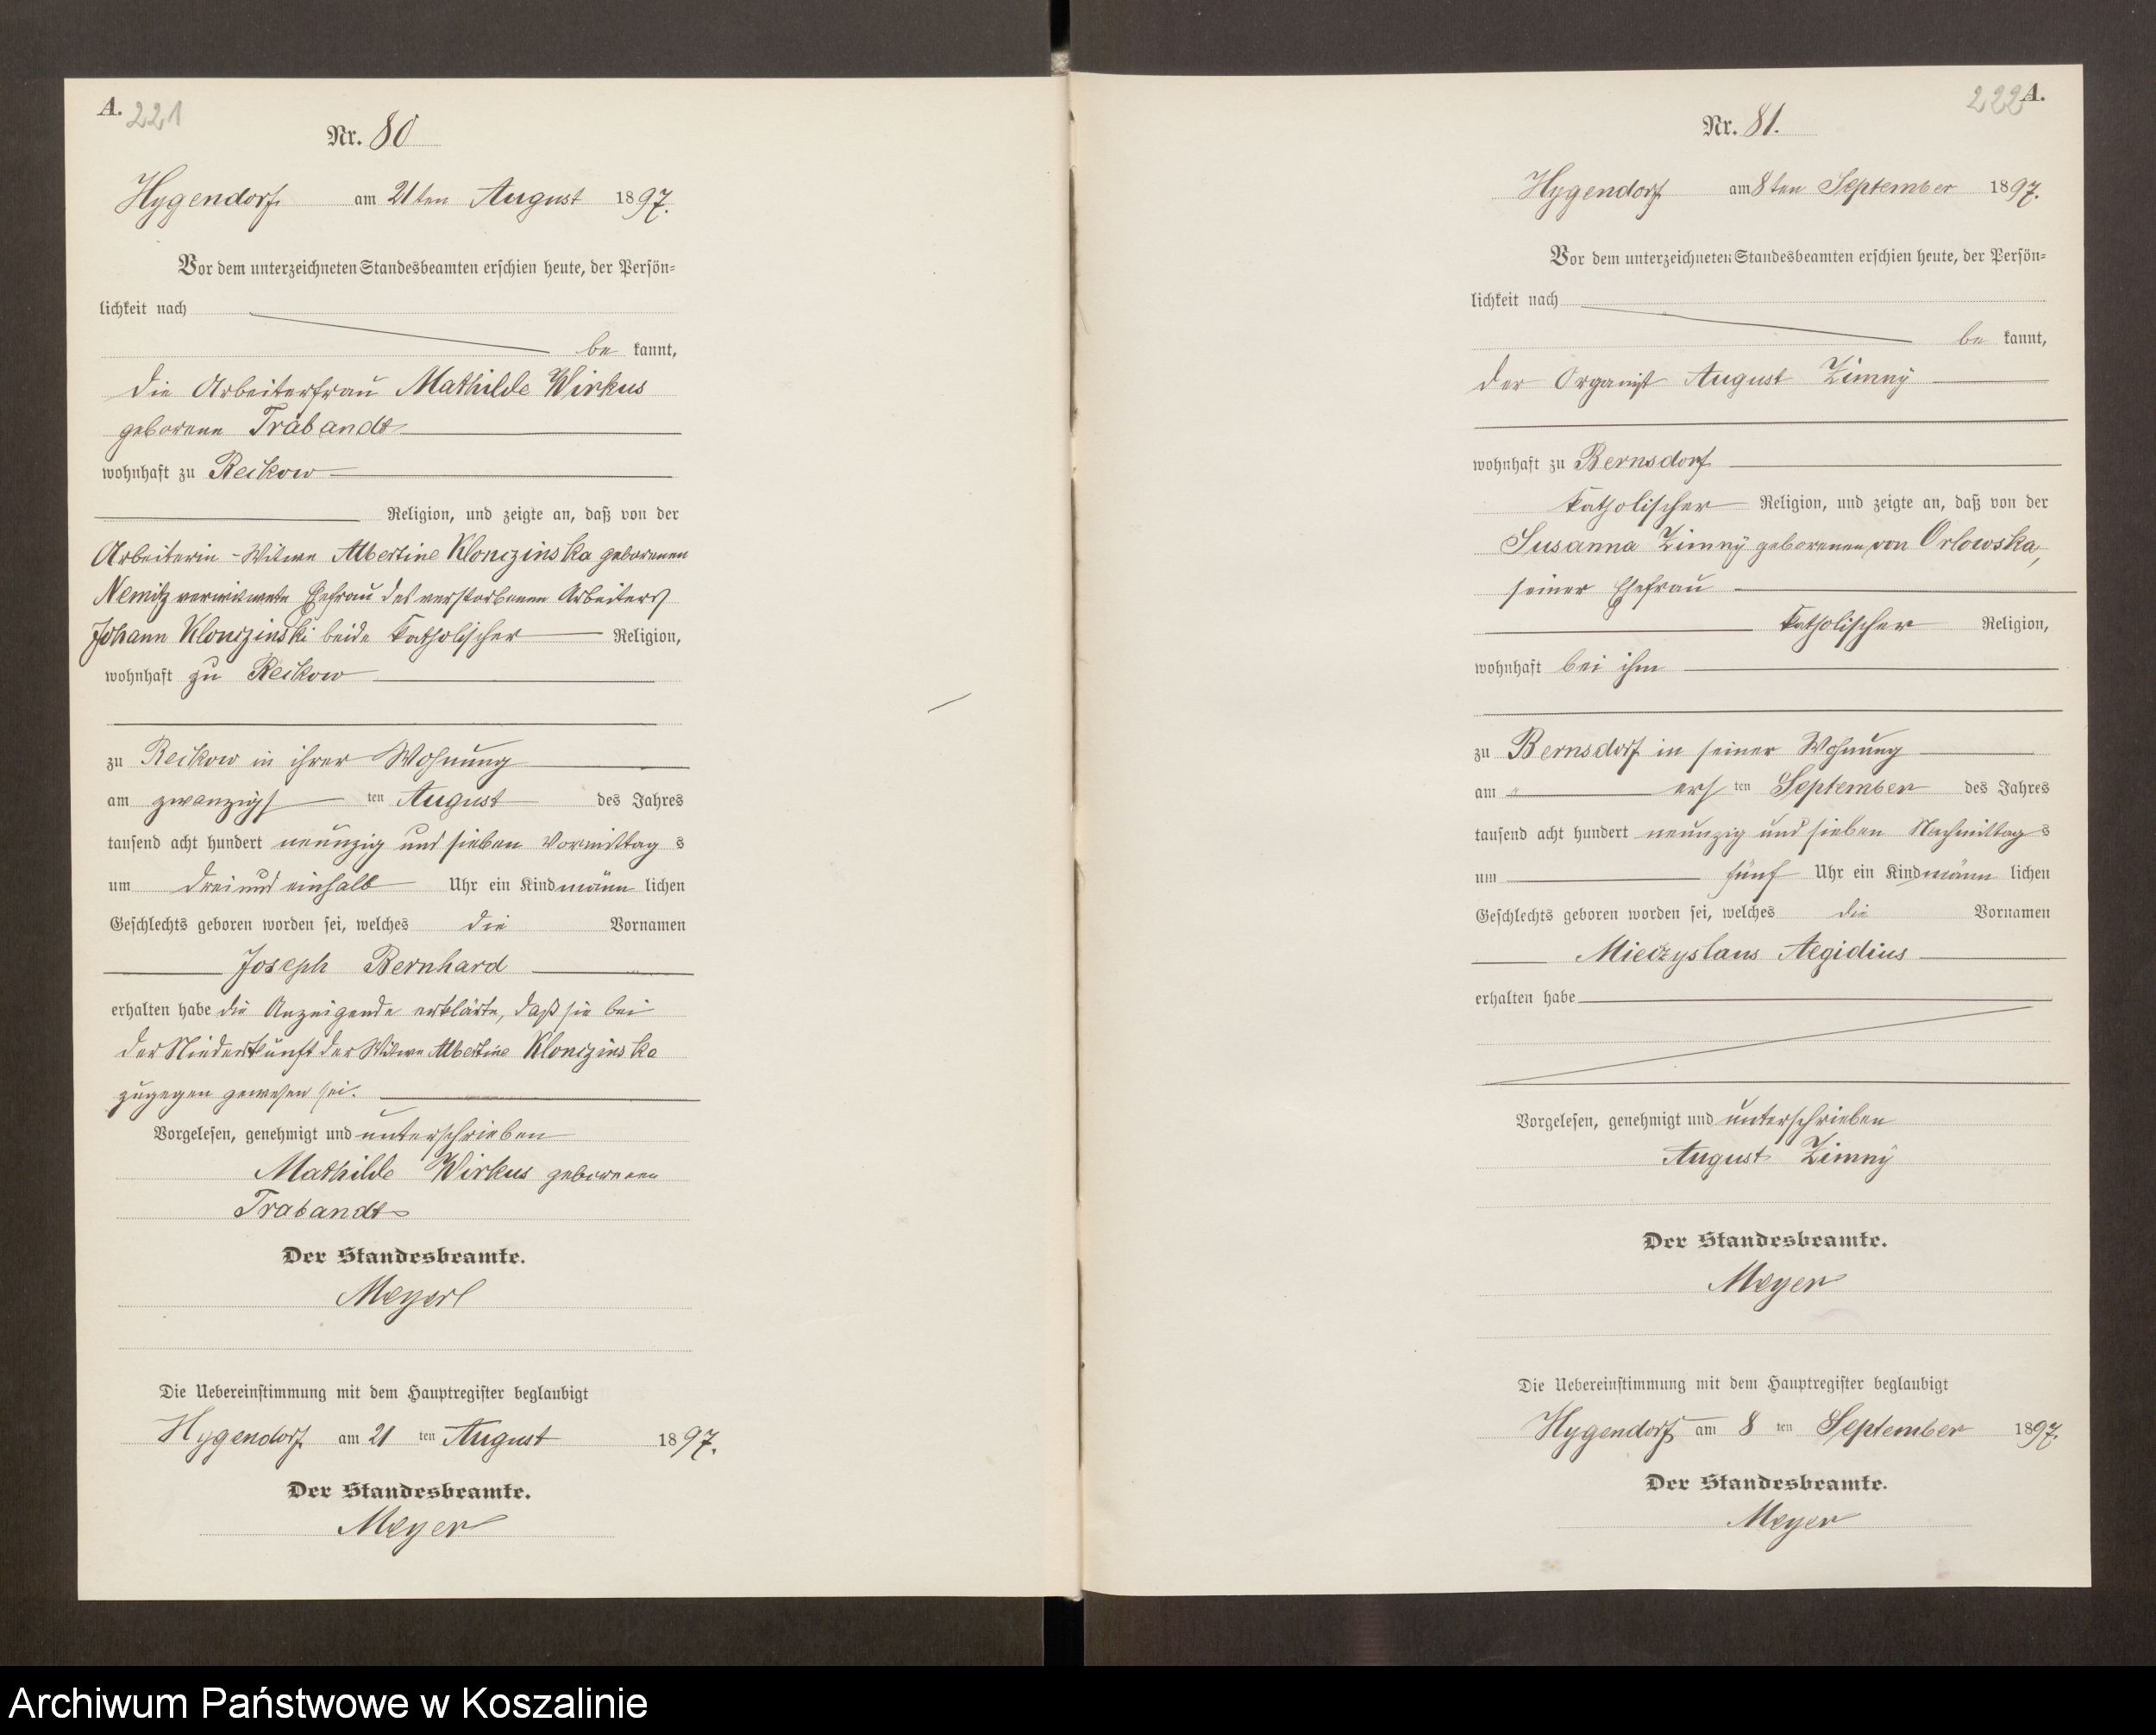 A. 221
Nr. 80
Hygendorf am 21ten August 1897.
Vor dem unterzeichneten Standesbeamten erschien heute, der Persön-
lichkeit nach
be kannt,
die Arbeiterfrau Mathilde Wirkus
geborene Trabandt
wohnhaft zu Reckow
Religion, und zeigte an, daß von der
Arbeiterin-Witwe Albertine Klonczinska geborenen
Nemitz verwitwete Ehefrau des verstorbenen Arbeiters
Johann Klonczinski beide katholischer Religion,
wohnhaft zu Reckow
zu Reckow in ihrer Wohnung
am zwanzigs ten August des Jahres
tausend acht hundert neunzig und sieben Vormittag s
um drei und einhalb Uhr ein Kind männ lichen
Geschlechts geboren worden sei, welches die Vornamen
Joseph Bernhard
erhalten habe die Anzeigende erklärte, daß sie bei
der Niederkunft der Witwe Albertine Klonczinska
zugegen gewesen sei.
Vorgelesen, genehmigt und unterschrieben
Mathilde Wirkus geborenen
Trabandt
Der Standesbeamte.
Meyer
Die Uebereinstimmung mit dem Hauptregister beglaubigt
Hygendorf am 21 ten August 1897.
Der Standesbeamte.
Meyer
222 A.
Nr. 81.
Hygendorf am 8ten September 1897.
Vor dem unterzeichneten Standesbeamten erschien heute, der Persön-
lichkeit nach
be kannt,
der Organist August Zimny
wohnhaft zu Bernsdorf
katholischer Religion, und zeigte an, daß von der
Susanna Zimny geborenen von Orlowska,
seiner Ehefrau
katholischer Religion,
wohnhaft bei ihm
zu Bernsdorf in seiner Wohnung
am ers ten September des Jahres
tausend acht hundert neunzig und sieben Nachmittag s
um fünf Uhr ein Kind männ lichen
Geschlechts geboren worden sei, welches die Vornamen
Mieczyslaus Aegidius
erhalten habe
Vorgelesen, genehmigt und unterschrieben
August Zimny
Der Standesbeamte.
Meyer
Die Uebereinstimmung mit dem Hauptregister beglaubigt
Hygendorf am 8 ten September 1897.
Der Standesbeamte.
Meyer
Archiwum Państwowe w Koszalinie